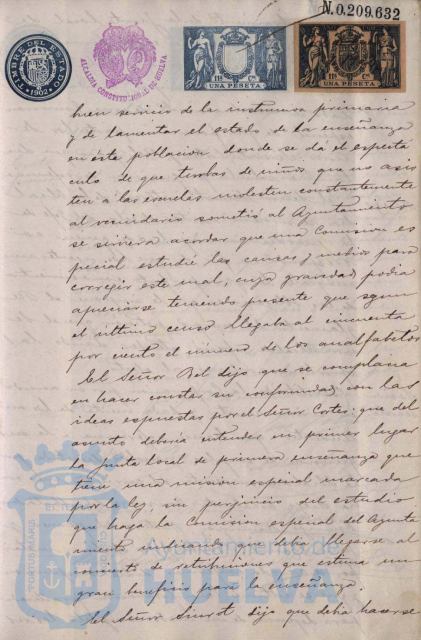 N.0.209.632
TIMBRE DEL ESTADO
1902
ALCALDIA CONSTITUCIONAL DE HUELVA
11ª Cª
UNA PESETA
11ª Cª
UNA PESETA
buen servicio de la instruccion primaria
y de lamentar el estado de la enseñanza
en ésta poblacion, donde se dá el espectá
culo de que turbas de niños que no asis
ten á las escuelas molesten constantemente
al vecindario sometió al Ayuntamiento
se sirviera acordar que una Comision es
pecial estudié las causas y medios para
corregir este mal, cuya gravedad podia
apreciarse teniendo presente que segun
el último censo llegaba al cincuenta
por ciento el número de los analfabetos
El Señor Bel dijo que se complacia
en hacer constar su conformidad con las
ideas espuestas por el Señor Cortés; que del
asunto deberia entender en primer lugar
la Junta local de primera enseñanza que
tiene una mision especial marcada
por la ley, sin perjuicio del estudio
que haga la Comision especial del Ayunta
miento indicando que debia llegarse al
concierto de retribuciones que estima un
gran beneficio para la enseñanza.
El Señor dijo que debia hacerse
Ayuntamiento de
HUELVA
PORTUS MARIS